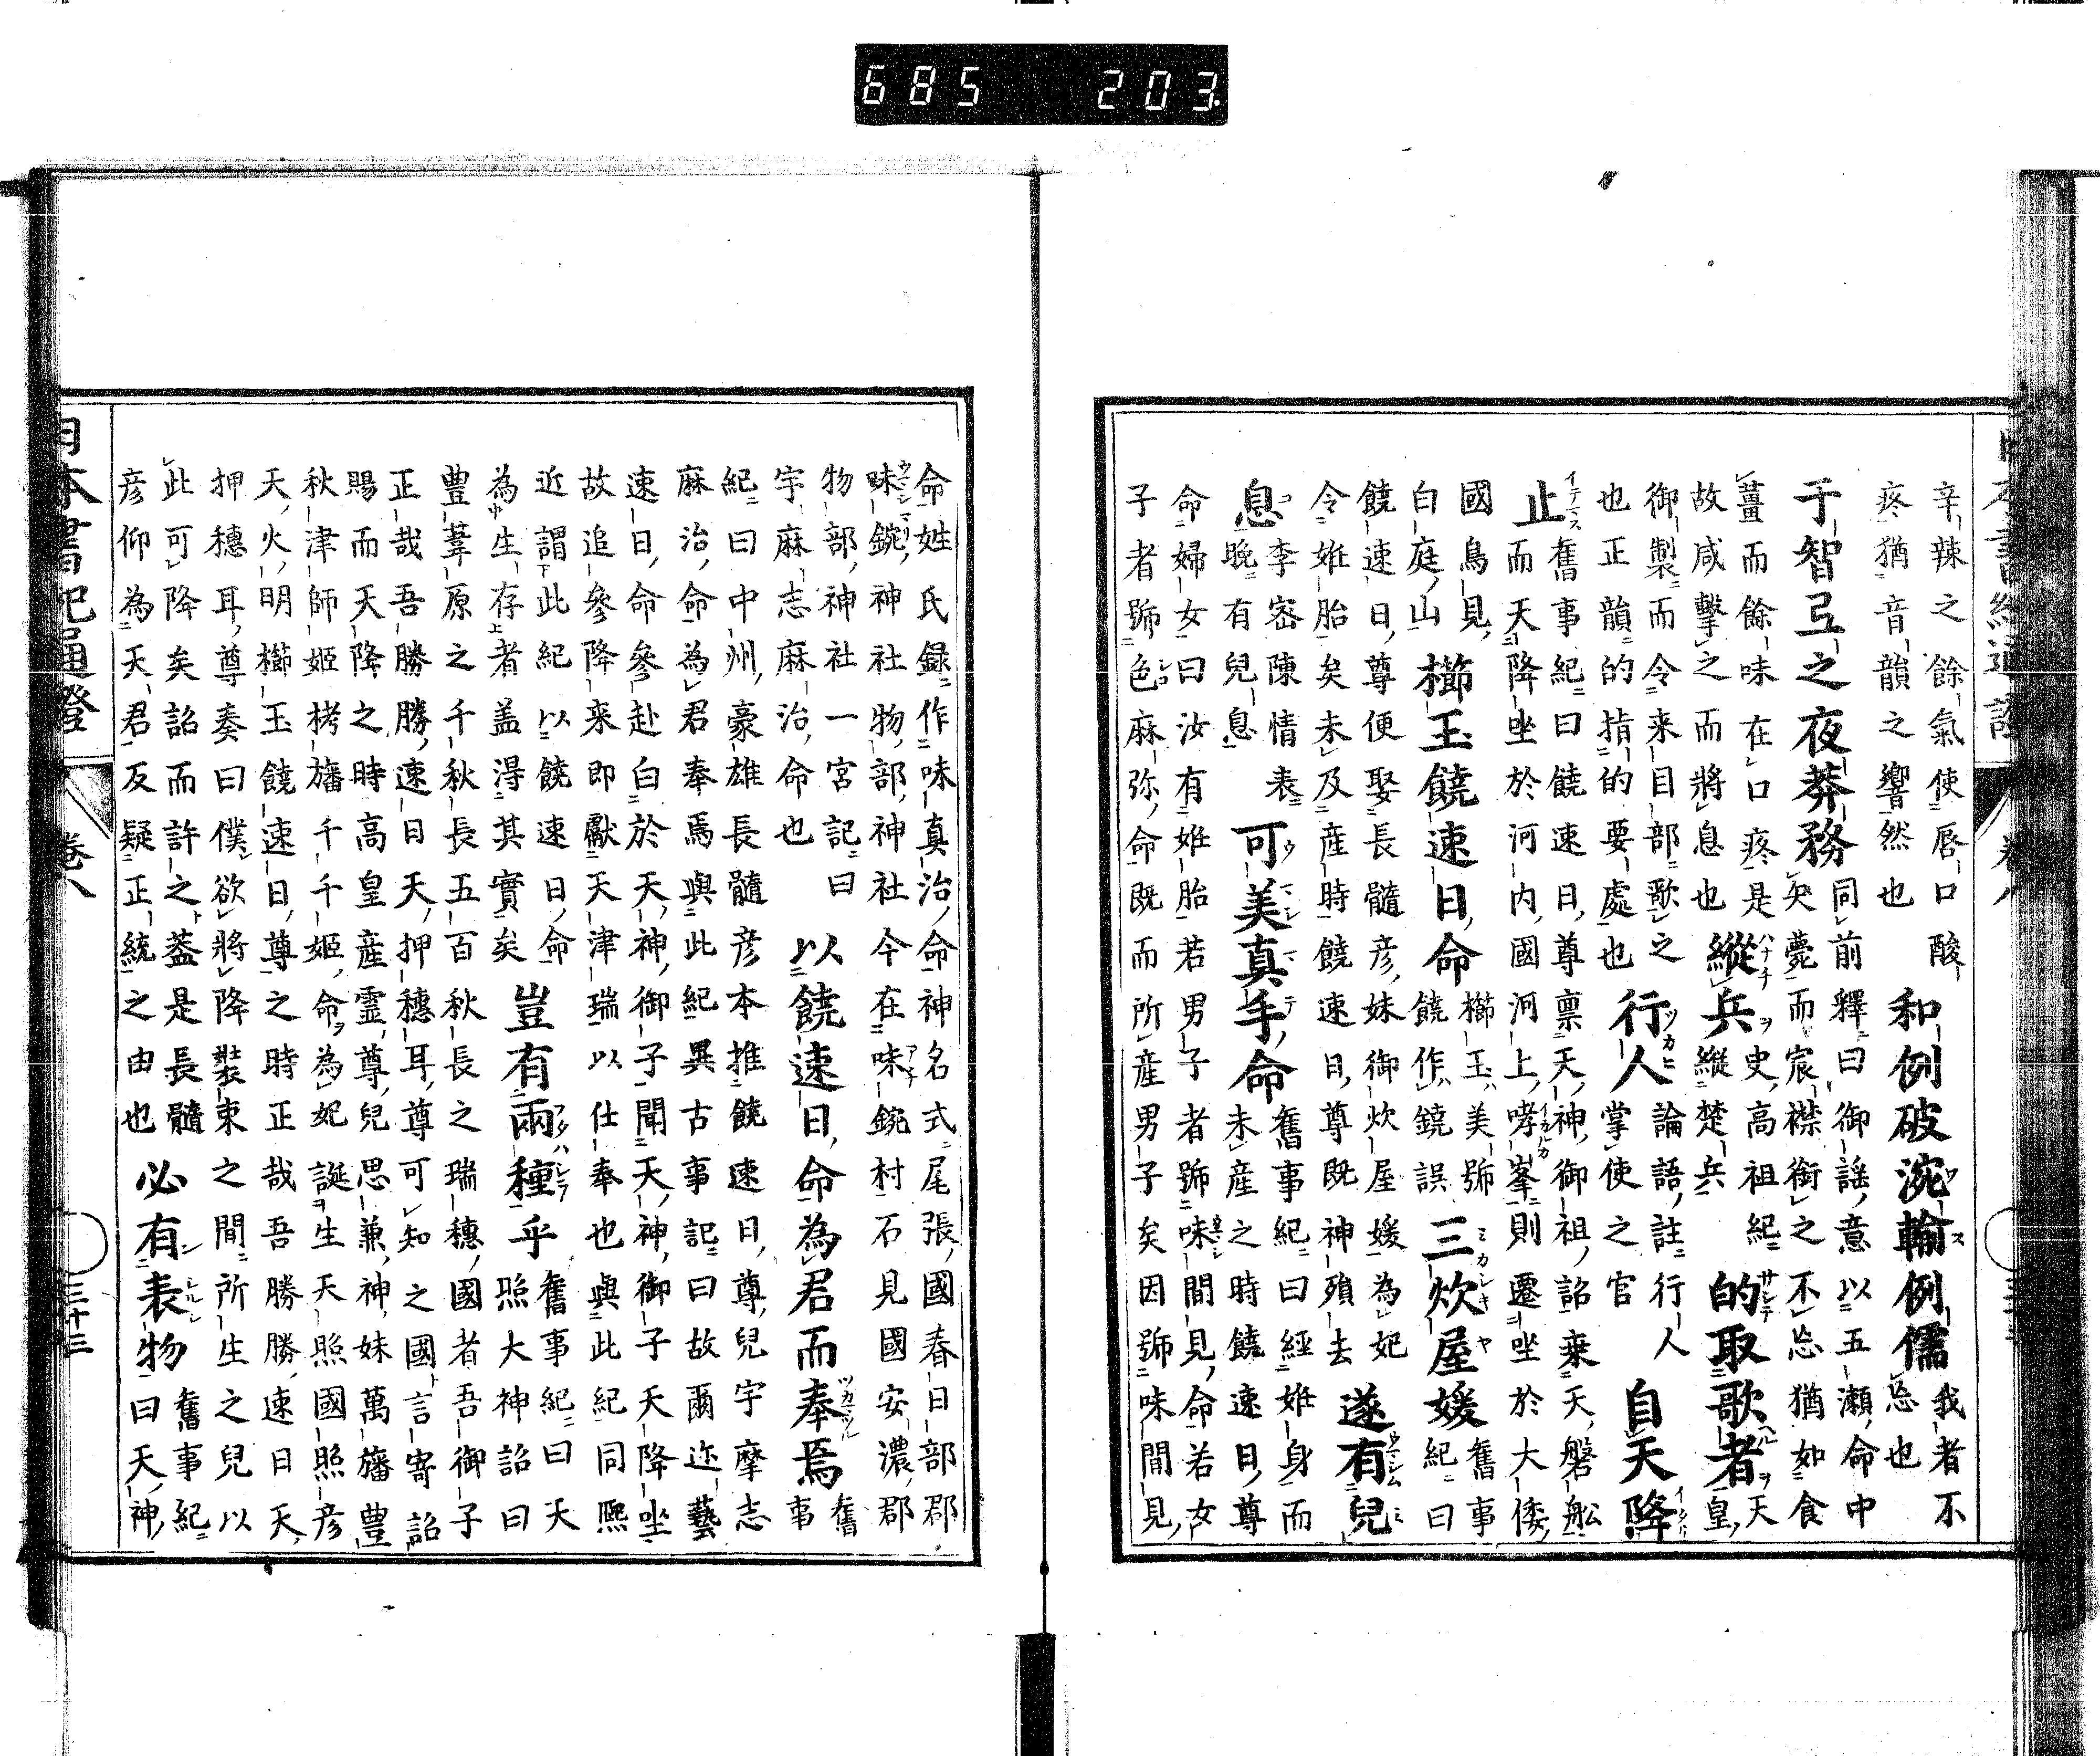 辛辣之餘氣使唇口酸
疼猶音韻之響然也
和例破涴輸例儒
我者不
忘也
于智弖之夜莽務
同前釋曰御謡意以五瀬命中
矢薨而宸襟銜之不忘猶如食
薑而餘味在口疼是
故咸擊之而將息也
縱兵
史高祖紀
縱楚兵
的取歌者
天
皇
御製而令来目部歌之
也正韻的指的要處也
行人
論語註行人
掌使之官
自天降
止
舊事紀曰饒速日尊稟天神御祖詔乗天磐舩
而天降坐於河内國河上哮峯則遷坐於大倭
國鳥見
白庭山
櫛玉饒速日命
櫛玉美號
饒作鐃誤
三炊屋媛
舊事
紀曰
饒速日尊便娶長髓彦妹御炊屋媛為妃
令妊胎矣未及産時饒速日尊既神殞去
遂有兒
息
李密陳情表
晩有兒息
可美真手命
舊事紀曰經妊身而
未産之時饒速日尊
命婦女曰汝有妊胎若男子者號味間見命若女
子者號色麻弥命既而所産男子矣因號味間見
命姓氏録作味真治命神名式尾張國春日部郡
味鋺神社物部神社今在味鋺村石見國安濃郡
物部神社一宮記曰
宇麻志麻治命也
以饒速日命為君而奉焉
舊
事
紀曰中州豪雄長髓彦本推饒速日尊兒宇摩志
麻治命為君奉焉與此紀異古事記曰故爾迩藝
速日命參赴白於天神御子聞天神御子天降坐
故追參降来即獻天津瑞以仕奉也與此紀同熈
近謂此紀以饒速日命
為生存者盖得其實矣
豈有兩種乎
舊事紀曰天
照大神詔曰
豊葦原之千秋長五百秋長之瑞穗國者吾御子
正哉吾勝勝速日天押穗耳尊可知之國言寄詔
賜而天降之時高皇産霊尊兒思兼神妹萬旛豊
秋津師姬栲旛千千姬命為妃誕生天照國照彦
天火明櫛玉饒速日尊之時正哉吾勝勝速日天
押穗耳尊奏曰僕欲將降裝束之間所生之兒以
此可降矣詔而許之葢是長髓
彦仰為天君反疑正統之由也
必有表物
舊事紀
曰天神
日本書紀通證 卷八 三十三
685 203